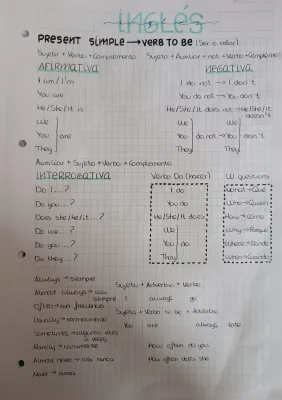 INGLÉS
PRESENT SIMPLE → VERB TO BE (Ser o estar)
Sujeto + Verbo + Complemento
Sujeto + Auxiliar + not + Verbo + Complemento
AFIRMATIVA
NEGATIVA
I am / I'm
I do not → I don't
You are
You do not → You don't
He/She/It is
He/She/It does not → He/She/It doesn't
We
You are
They
We
You do not → You don't
They
Auxiliar + Sujeto + Verbo + Complemento
INTERROGATIVA
Verbo Do (hacer)
W questions
Do I...?
I do
What → Qué
Do you...?
You do
Who → Quién
Does she/he/it...?
He/She/It does
How → Cómo
Do we...?
We
Why →
Do you...?
You do
Where → Donde
Do they...?
They
When → Cuando
Always → siempre
Almost always → casi siempre
Sujeto + Adverbio + Verbo
Often → con frecuencia
I always go
Usually → normalmente
Sujeto + Verbo to be + Adverbio
Sometimes → algunas veces
You are always late
Rarely → raramente
How often do you
Almost never → casi nunca
How often does she
Never → nunca